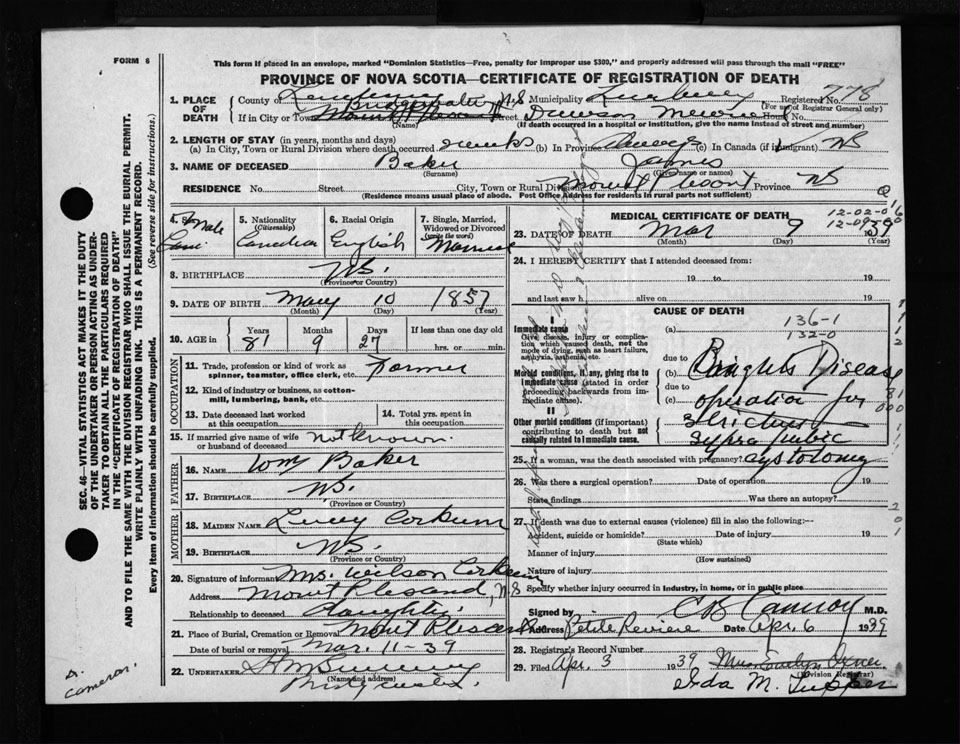 FORM 6
This form if placed in an envelope, marked "Dominion Statistics—Free, penalty for improper use $300," and properly addressed will pass through the mail "FREE"
PROVINCE OF NOVA SCOTIA—CERTIFICATE OF REGISTRATION OF DEATH
1. PLACE OF DEATH
County of Lunenburg Municipality Lunenburg Registered No. 778
(For use of Registrar General only)
Bridgewater, N.S
If in City or Town Mount Pleasant Street Dawson Memorial House No.
(Name) (If death occurred in a hospital or institution, give the name instead of street and number)
2. LENGTH OF STAY (in years, months and days)
(a) In City, Town or Rural Division where death occurred weeks (b) In Province always (c) In Canada (if immigrant) NS
3. NAME OF DECEASED Baker James
(Surname) (Given name or names)
RESIDENCE No. Street City, Town or Rural Division Mount Plesant Province NS
(Residence means usual place of abode. Post Office Address for residents in rural parts not sufficient)
4. Sex Male
5. Nationality (Citizenship) Canadian
6. Racial Origin English
7. Single, Married, Widowed or Divorced (write the word) Married
8. BIRTHPLACE NS.
(Province or Country)
9. DATE OF BIRTH May 10 1857
(Month) (Day) (Year)
10. AGE in Years Months Days If less than one day old
81 9 27 hrs. or min.
OCCUPATION
11. Trade, profession or kind of work as spinner, teamster, office clerk, etc. Farmer
12. Kind of industry or business, as cotton-mill, lumbering, bank, etc.
13. Date deceased last worked at this occupation
14. Total yrs. spent in this occupation
15. If married give name of wife or husband of deceased not known.
FATHER
16. NAME Wm Baker
17. BIRTHPLACE NS.
(Province or Country)
MOTHER
18. MAIDEN NAME Lucy Corkum
19. BIRTHPLACE NS.
(Province or Country)
20. Signature of informant Mrs Wilson Corkum
Address Mount Plesand, N.S
Relationship to deceased daughter.
21. Place of Burial, Cremation or Removal Mont Plesant
Date of burial or removal Mar. 11-39
22. UNDERTAKER
(Name and address)
MEDICAL CERTIFICATE OF DEATH
12-02-0
12-09-0
23. DATE OF DEATH Mar 9 1939
(Month) (Day) (Year)
24. I HEREBY CERTIFY that I attended deceased from:
19 to 19
and last saw h alive on 19
CAUSE OF DEATH
136-1
132-0
I
Immediate cause
Give disease, injury or complication which caused death, not the mode of dying, such as heart failure, asphyxia, asthenia, etc.
(a)
due to
Morbid conditions, if any, giving rise to immediate cause (stated in order proceeding backwards from immediate cause).
(b) Brights Disease
due to
(c) operation for
II
Other morbid conditions (if important) contributing to death but not causally related to immediate cause.
stricture
supra pubic
cystotomy
25. If a woman, was the death associated with pregnancy?
26. Was there a surgical operation? Date of operation 19
State findings Was there an autopsy?
27. If death was due to external causes (violence) fill in also the following:—
Accident, suicide or homicide? Date of injury 19
(State which)
Manner of injury
(How sustained)
Nature of injury
Specify whether injury occurred in industry, in home, or in public place
Signed by M.D.
Address Petite Reviere Date Apr. 6 1939
28. Registrar's Record Number
29. Filed Apr. 3 1939
Ida M. Tupper
(Division Registrar)
SEC. 46—VITAL STATISTICS ACT MAKES IT THE DUTY
OF THE UNDERTAKER OR PERSON ACTING AS UNDERTAKER TO OBTAIN ALL THE PARTICULARS REQUIRED
IN THE "CERTIFICATE OF REGISTRATION OF DEATH"
AND TO FILE THE SAME WITH THE DIVISION REGISTRAR WHO SHALL ISSUE THE BURIAL PERMIT.
WRITE PLAINLY WITH UNFADING INK. THIS IS A PERMANENT RECORD.
Every item of information should be carefully supplied. (See reverse side for instructions.)
Cameron.